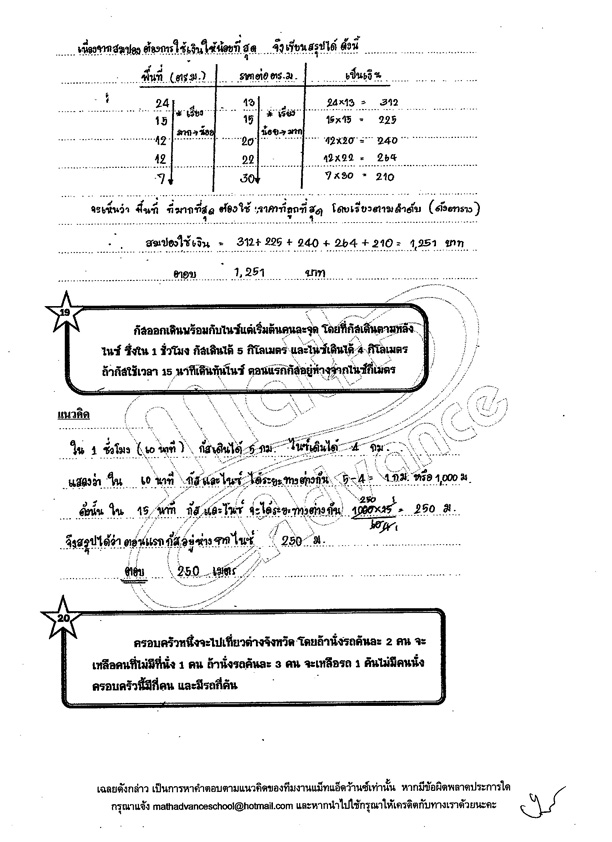 เนื่องจากสมปองต้องการใช้เงินให้น้อยที่สุด จึงเขียนสรุปได้ ดังนี้
พื้นที่ (ตร.ม.) ราคาต่อ ตร.ม. เป็นเงิน
24 13 24×13 = 312
15 * เรียง 15 * เรียง 15×15 = 225
12 มาก→น้อย 20 น้อย→มาก 12×20 = 240
12 22 12×22 = 264
7 30 7×30 = 210
จะเห็นว่า พื้นที่ ที่มากที่สุด ต้องใช้ราคาที่ถูกที่สุด โดยเรียงตามลำดับ (ดังตาราง)
สมปองใช้เงิน = 312+ 225 + 240 + 264 + 210 = 1,251 บาท
ตอบ 1,251 บาท
19
กัสออกเดินพร้อมกับไนซ์แต่เริ่มต้นคนละจุด โดยที่กัสเดินตามหลัง
ไนซ์ ซึ่งใน 1 ชั่วโมง กัสเดินได้ 5 กิโลเมตร และไนซ์เดินได้ 4 กิโลเมตร
ถ้ากัสใช้เวลา 15 นาทีเดินทันไนซ์ ตอนแรกกัสอยู่ห่างจากไนซ์กี่เมตร
แนวคิด
ใน 1 ชั่วโมง (60 นาที) กัสเดินได้ 5 กม. ไนซ์เดินได้ 4 กม.
แสดงว่า ใน 60 นาที กัส และไนซ์ ได้ระยะทางต่างกัน 5-4 = 1 กม. หรือ 1,000 ม.
ดังนั้น ใน 15 นาที กัส และไนซ์ จะได้ระยะทางต่างกัน 1000×15 = 250 ม.
จึงสรุปได้ว่า ตอนแรกกัสอยู่ห่างจากไนซ์ 250 ม.
ตอบ 250 เมตร
Math
Advance
20
ครอบครัวหนึ่งจะไปเที่ยวต่างจังหวัด โดยถ้านั่งรถคันละ 2 คน จะ
เหลือคนที่ไม่มีที่นั่ง 1 คน ถ้านั่งรถคันละ 3 คน จะเหลือรถ 1 คันไม่มีคนนั่ง
ครอบครัวนี้มีกี่คน และมีรถกี่คัน
เฉลยดังกล่าว เป็นการหาคำตอบตามแนวคิดของทีมงานแม็ทแอ็ดว้านซ์เท่านั้น หากมีข้อผิดพลาดประการใด
กรุณาแจ้ง mathadvanceschool@hotmail.com และหากนำไปใช้กรุณาให้เครดิตกับทางเราด้วยนะคะ